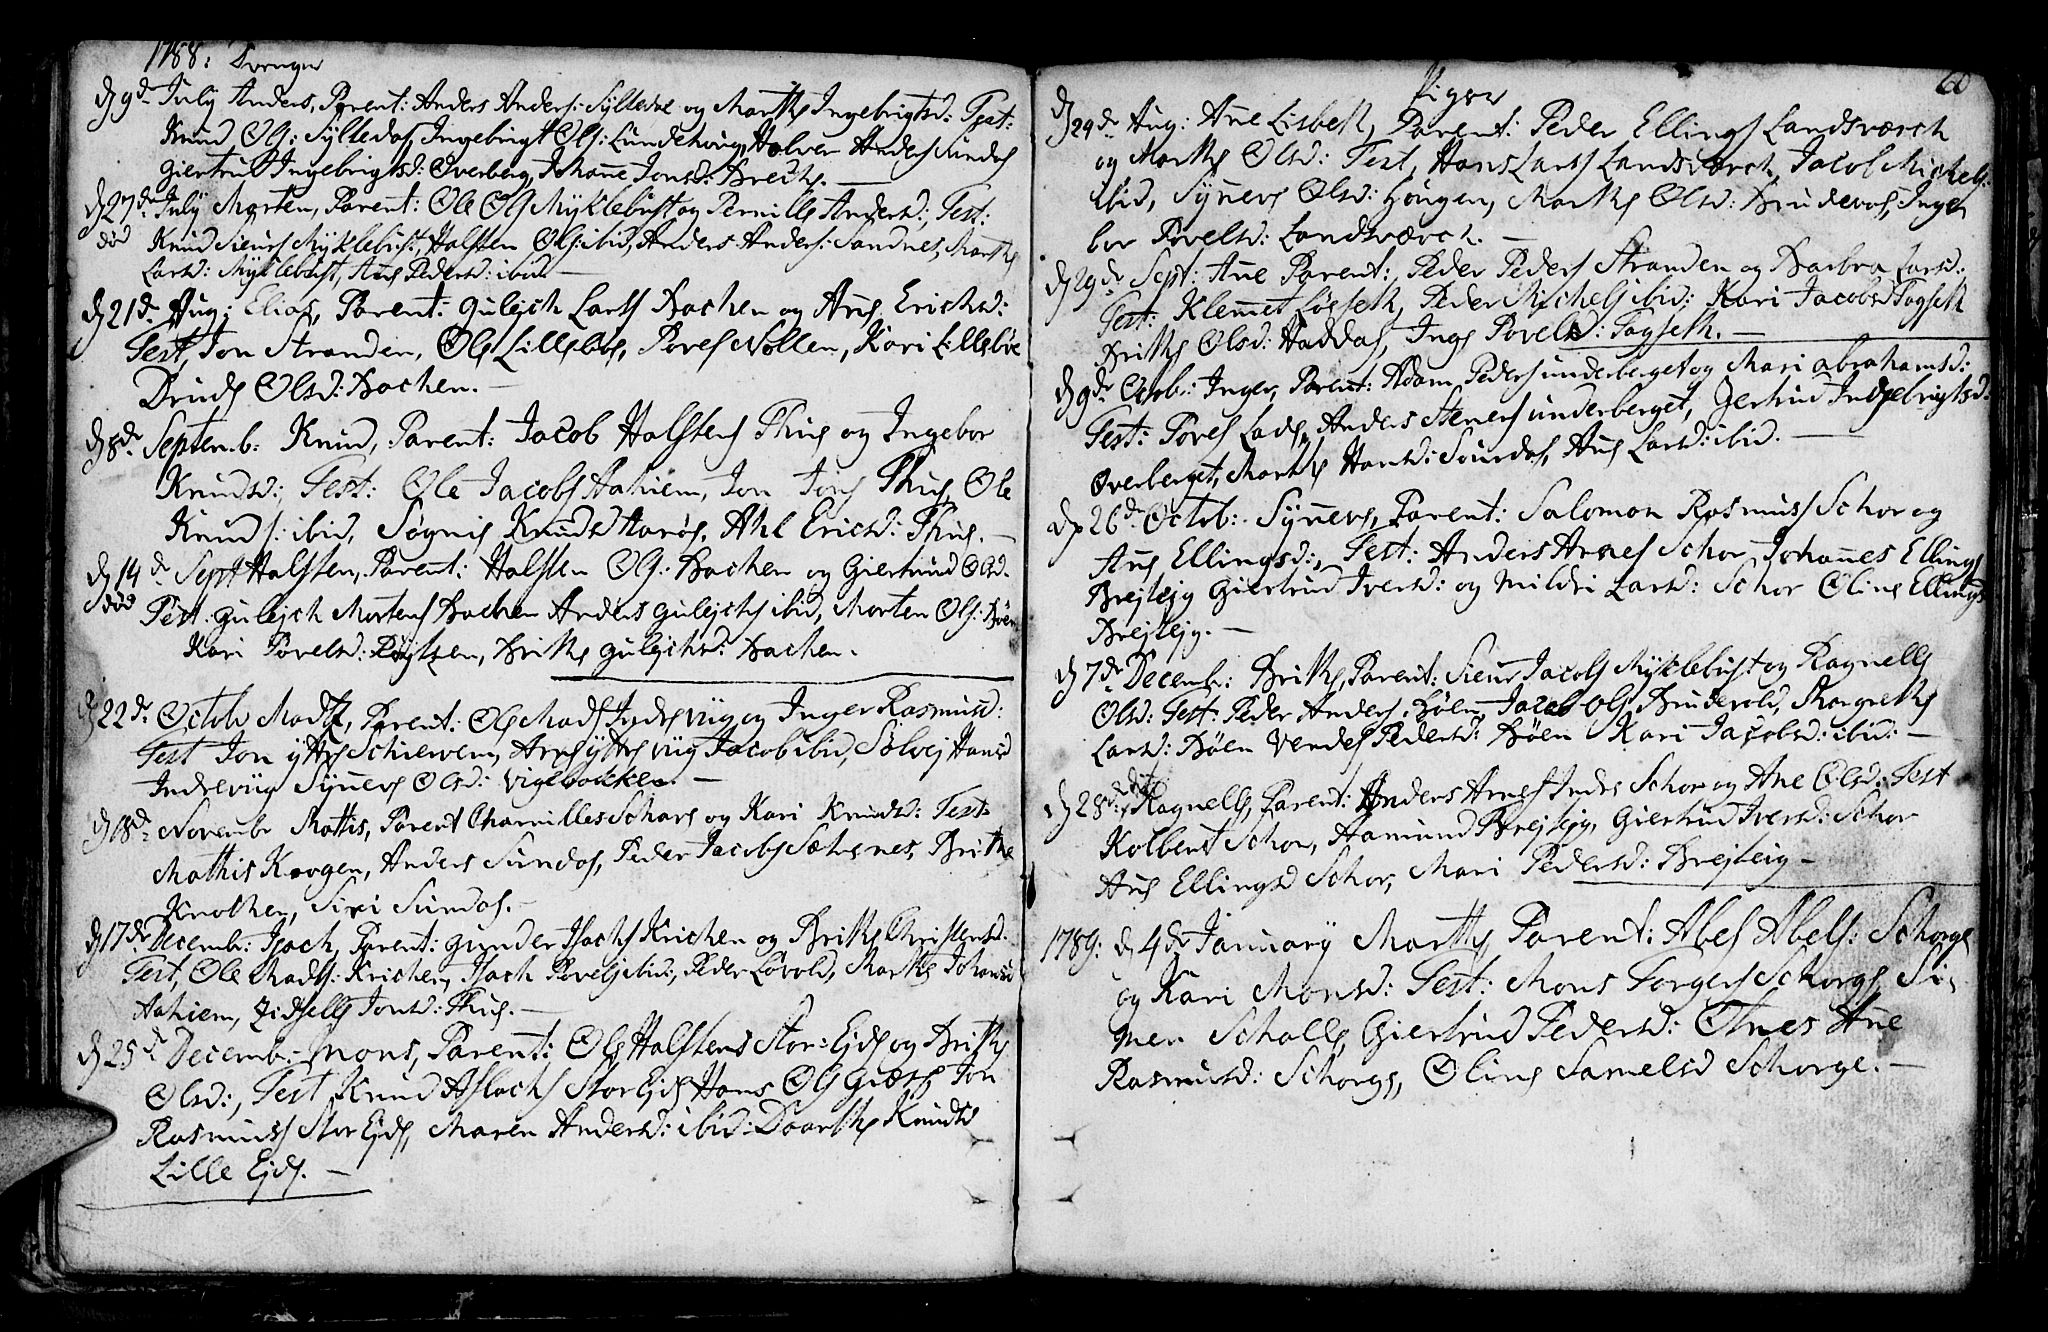 1788: Drenger
d 9de July Anders, Parent: Anders Anders: Sylledal og Marthe Ingebrigtsd: Test:
Knud Ols: Sylledal, Ingebrigt Ols: Lundehoug, Halvor Anders Sundal
Giertrud Ingebrigtsd: Overberg, Johanne Jonsd: Brech.
d 27de July Morten, Parent: Ole Ols Myklebust og Pernille Andersd: Test:
død Knud Siurs Myklebust, Halsten Ols: ibid, Anders Anders: Sandnes, Marthe
Larsd: Myklebust, Ane Pedersd: ibid
d 21de Aug: Elias, Parent: Gulejch Lars Bachen og Ane Erichsd:
Test, Jon Stranden, Ole Lillebøe, Povel Nollen, Kari Lillebøe
Drude Olsd: Bachen.
d 8de Septemb: Knud, Parent: Jacob Halstens Thue og Ingebor
Knudsd: Test: Ole Jacobs Aahiem, Jon Jons Thue, Ole
Knuds: ibid, Søgnie Knudsd Harøe, Ahl Ericsd: Thue.
d 14de Sept Halsten, Parent: Halsten Ols: Bachen og Giertrud Olsd
død Test: Gulejch Mortens Bachen Anders Gulejchs ibid, Morten Ols: Bøen
Kari Povelsd: Røytsen, Brithe Gulejchsd: Bachen.
d 22de Octob Madtz, Parent: Ole Mads Indreviig og Inger Rasmusd:
Test Jon ytre Schieven, Arne ytreviig Jacob ibid, Solvej Hansd
Indreviig Synneve Olsd: Vigebakken.
d 18de Novembr Mathis, Parent Chamilles Schare og Kari Knudsd: Test:
Mathis Korgen, Anders Sundal, Peder Jacobs Sætrenes, Brithe
Knothen, Siri Sundal.
d 17de Decemb: Isach, Parent: Gunder Isachs Krichen og Brithe Christensd:
Test, Ole Mads: Krichen, Isach Povels ibid:, Peder Løvold, Marthe Johansd
Aahiem, Zidselle Jonsd: Thue.
d 25de Decemb: Mons, Parent: Ole Halstens Stor-Ejde og Brithe
Olsd:, Test Knud Aslachs Stor Ejde Hans Ols Giære, Jon
Rasmuss Stor Ejde, Maren Andersd: ibid: Daarthe Knudsd
Lille Ejde.
Piger
60
d 29de Aug: Ane Lisbeth, Parent: Peder Ellings Landsværch
og Marthe Olsd: Test, Hans Lars Landsværch, Jacob Michels:
ibid, Syneve Olsd: Hougen, Marthe Olsd: Brudevol, Inge
bor Povelsd: Landsværch.
d 29de Sept: Ane Parent:, Peder Peders Stranden og Barbra Larsd:
Test: Klemet Løseth, Peder Michels ibid: Kari Jacobsd Fagseth
Brithe Olsd: Haddal, Inge Povelsd: Fagseth.
d 9de Octob: Inger, Parent: Adam Peders underberget og Mari Abrahamsd:
Test: Povel Lade, Anders Steners underberget, Gertrud Indgebrigtsd:
Overberget, Marthe Hansd: Sourdal, Ane Larsd: ibid.
d 26de Octob: Syneve, Parent: Salomon Rasmuss Schor og
Ane Ellingsd:, Test: Anders Arnes Schor Johannes Ellings
Brejtejg Giertrud Iversd: og Mildri Larsd: Schor Oline Ellingsd
Brejtejg.
d 7de Decemb: Brithe, Parent: Siur Jacobs Myklebust og Ragnelle
Olsd: Test: Peder Anders: Bøen, Jacob Ols Brudevold, Margrethe
Larsd: Bøen Vendel Pedersd: Bøen Kari Jacobsd: ibid:
d 28de dito Ragnelle, Parent: Anders Arnes Indre Schor og Ane Olsd: Test
Kolbent Schor, Aamund Brejtejg, Giertrud Iversd: Schor
Ane Ellingsd Schor, Mari Pedersd: Brejteig
1789: d 4de January Marthe Parent: Abel Abels: Schorge
og Kari Monsd: Test: Mons Torgers Schorge, Si-
men Schalle, Giertrud Pedersd: Otnes Ane
Rasmusd: Schorge, Oline Samelsd Schorge.